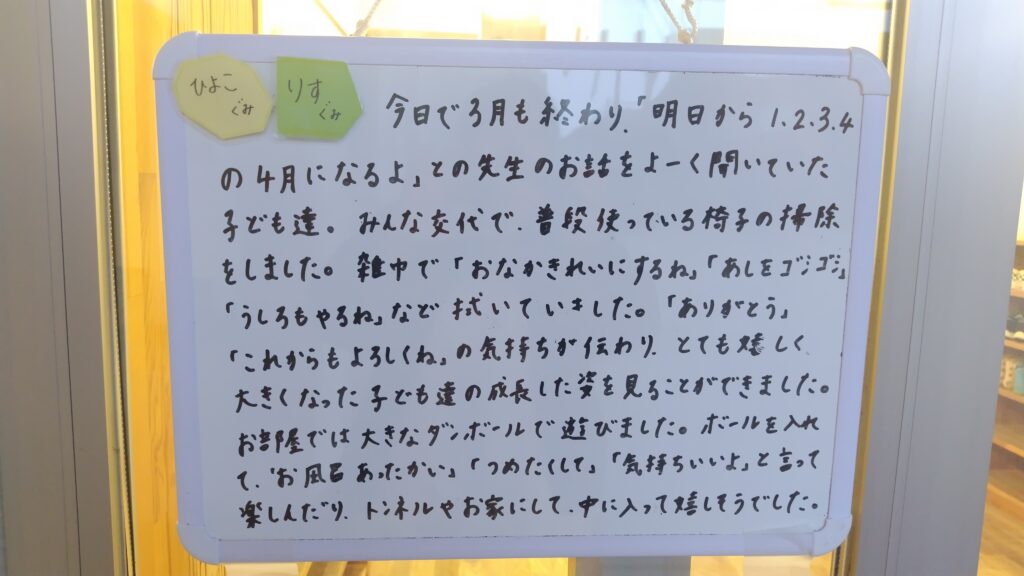 ひよこ
ぐみ
りす
ぐみ
今日で3月も終わり、「明日から 1.2.3.4
の4月になるよ」との先生のお話をよーく聞いていた
子ども達。みんな交代で、普段使っている椅子の掃除
をしました。雑巾で「おなかきれいにするね」「あしをゴシゴシ」
「うしろもやるね」など拭いていました。「ありがとう」
「これからもよろしくね」の気持ちが伝わり、とても嬉しく
大きくなった子ども達の成長した姿を見ることができました。
お部屋では大きなダンボールで遊びました。ボールを入れ
て、"お風呂あったかい」「つめたくして」「気持ちいいよ」と言って
楽しんだり、トンネルやお家にして、中に入って嬉しそうでした。